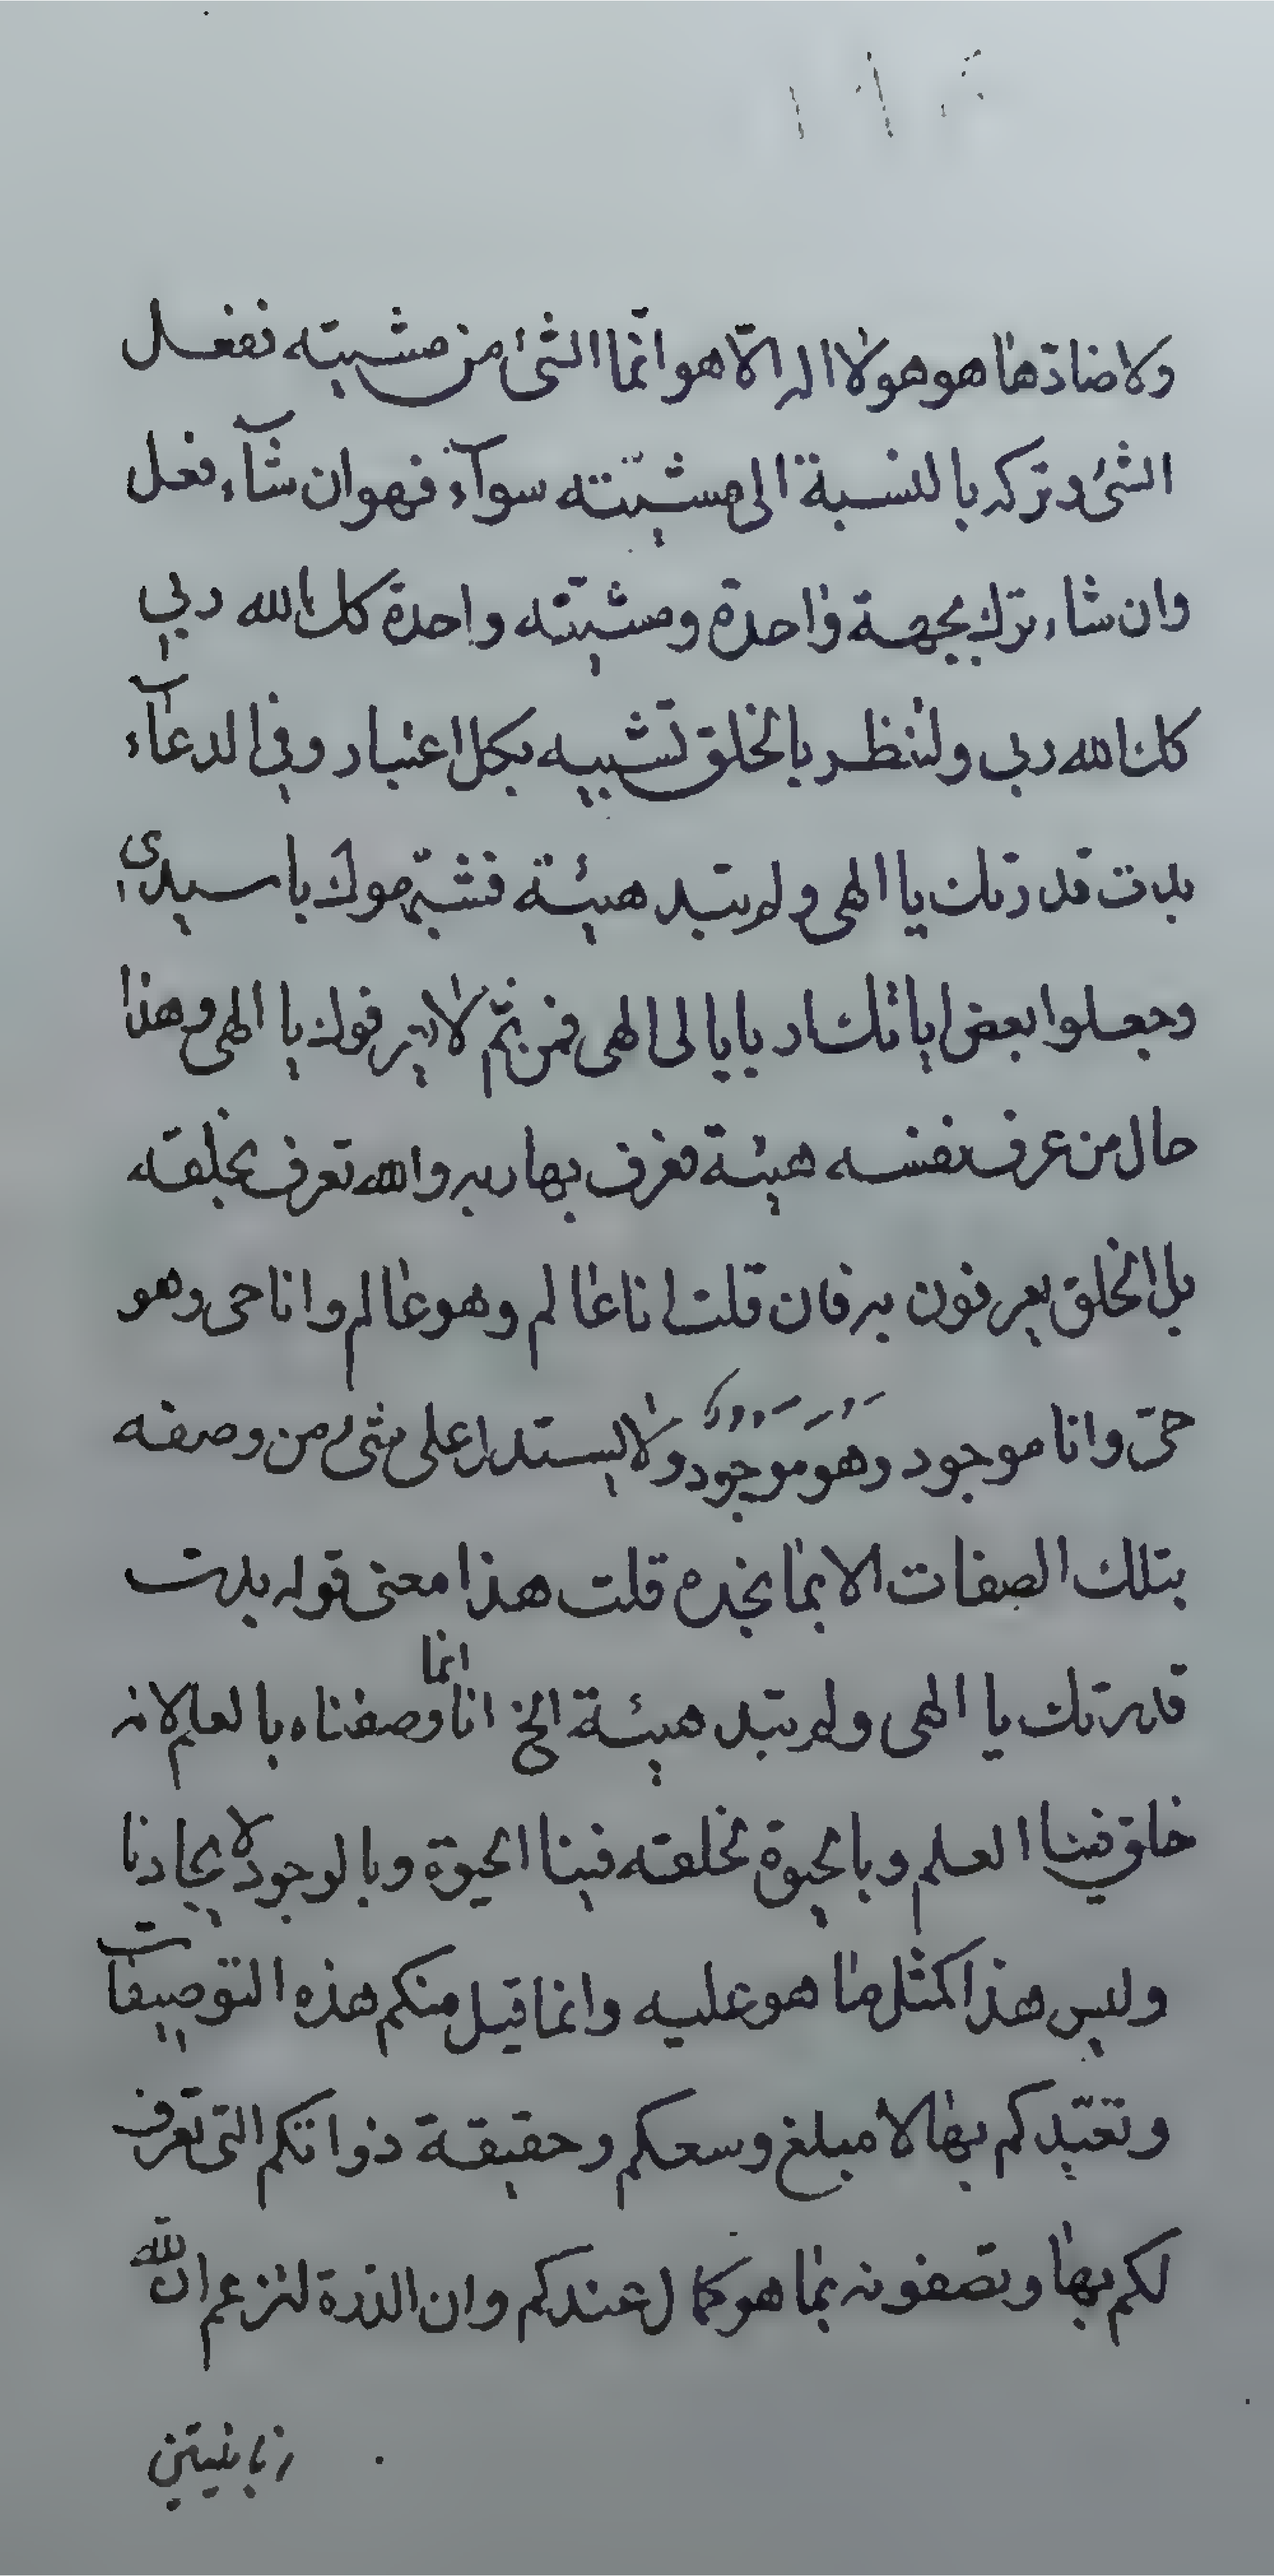 ولا ضادّها هو هو لا اله الّا هو انّما الشئ من مشيته ففعل
الشئ و تركه بالنسبة الى مشيّته سوآء فهو ان شآء فعل
وان شاء ترك بجهة واحدة ومشيّته واحدة كك الله ربي
كك الله ربي ولننظر بالخلق تشبيه بكل اعتبار وفي الدعآء
بدت قدرتك يا الهي ولم تبد هيئة فشبّهوك يا سيدي
وجعلوا بعض اياتك اربابا يا الهي فمن ثمّ لا يعرفوك يا الهي وهذا
حال من عرف نفسه هيئة فعرف بها ربه والله تعرف بخلقه
بل الخلق يعرفون به فان قلت انا عالم وهو عالم وانا حي وهو
حيّ وانا موجود وهو موجود ولا يستدل على شئ من وصفه
بتلك الصفات الا بما نجده قلت هذا معنى قوله بدت
قدرتك يا الهي ولم تبد هيئة الخ انا انما وصفناه بالعلم لانه
خلق فينا العلم وبالحيوة لخلقه فينا الحيوة وبالوجود لايجادنا
وليس هذا كمثل ما هو عليه وانما قبل منكم هذه التوصيفات
وتعبّدكم بها لا مبلغ وسعكم وحقيقة ذواتكم التي تعرف
لكم بها وتصفونه بما هو كمال عندكم وان الذرة لتزعم ان لله
زبانيتين